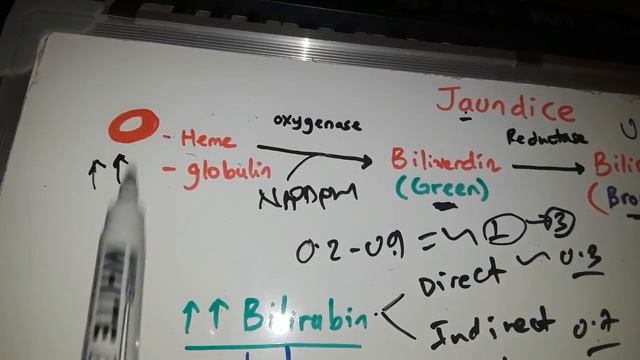 Jaundice
oxygenase
Reductase
- Heme
- globulin
NADPH
Biliverdin
(Green)
Bili
(Bro
0.2-0.9 = ~ 1 → 3
↑↑
Direct ~ 0.3
↑↑ Bilirubin
Indirect 0.7